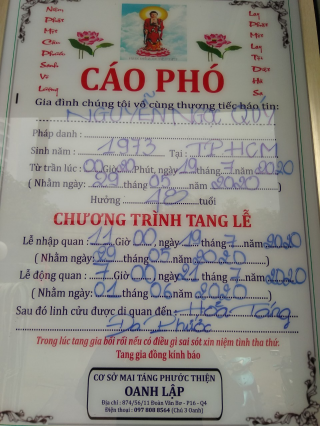 Niệm
Phật
Một
Câu
Phước
Sanh
Vô
Lượng
Lạy
Phật
Một
Lạy
Tội
Diệt
Hà
Sa
CÁO PHÓ
Gia đình chúng tôi vô cùng thương tiếc báo tin:
NGUYỄN NGỌC QUÝ
Pháp danh :
Sinh năm : 1973 Tại : TP.HCM
Từ trần lúc : 00 Giờ Phút, ngày 19 tháng 7 năm 2020
( Nhằm ngày: 29 tháng 05 năm 2020 )
Hưởng tuổi
CHƯƠNG TRÌNH TANG LỄ
Lễ nhập quan : 11 Giờ 00, ngày 19 tháng 7 năm 2020
( Nhằm ngày: 29 tháng 05 năm 2020 )
Lễ động quan : 7 Giờ 00 ngày 21 tháng 7 năm 2020
( Nhằm ngày: 01 tháng 06 năm 2020 )
Sau đó linh cửu được di quan đến Hỏa Táng
Đa Phước
Trong lúc tang gia bối rối nếu có điều gì sai sót xin niệm tình tha thứ.
Tang gia đồng kính báo
CƠ SỞ MAI TÁNG PHƯỚC THIỆN
OANH LẬP
Địa chỉ : 874/56/11 Đoàn Văn Bơ - P16 - Q4
Điện thoại : 097 808 8564 (Chú 3 Oanh)